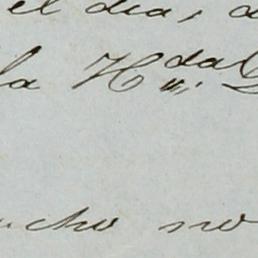 el dia,
la H.da
ucho no